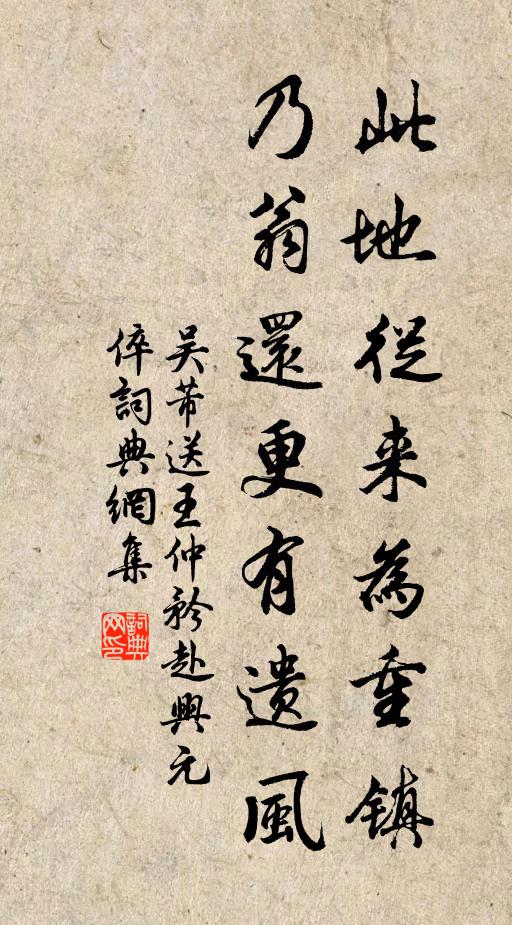 此地從来為重镇
乃翁還更有遺風
吴芾送王仲衿赴興元
倅詞典網集
詞典
网印